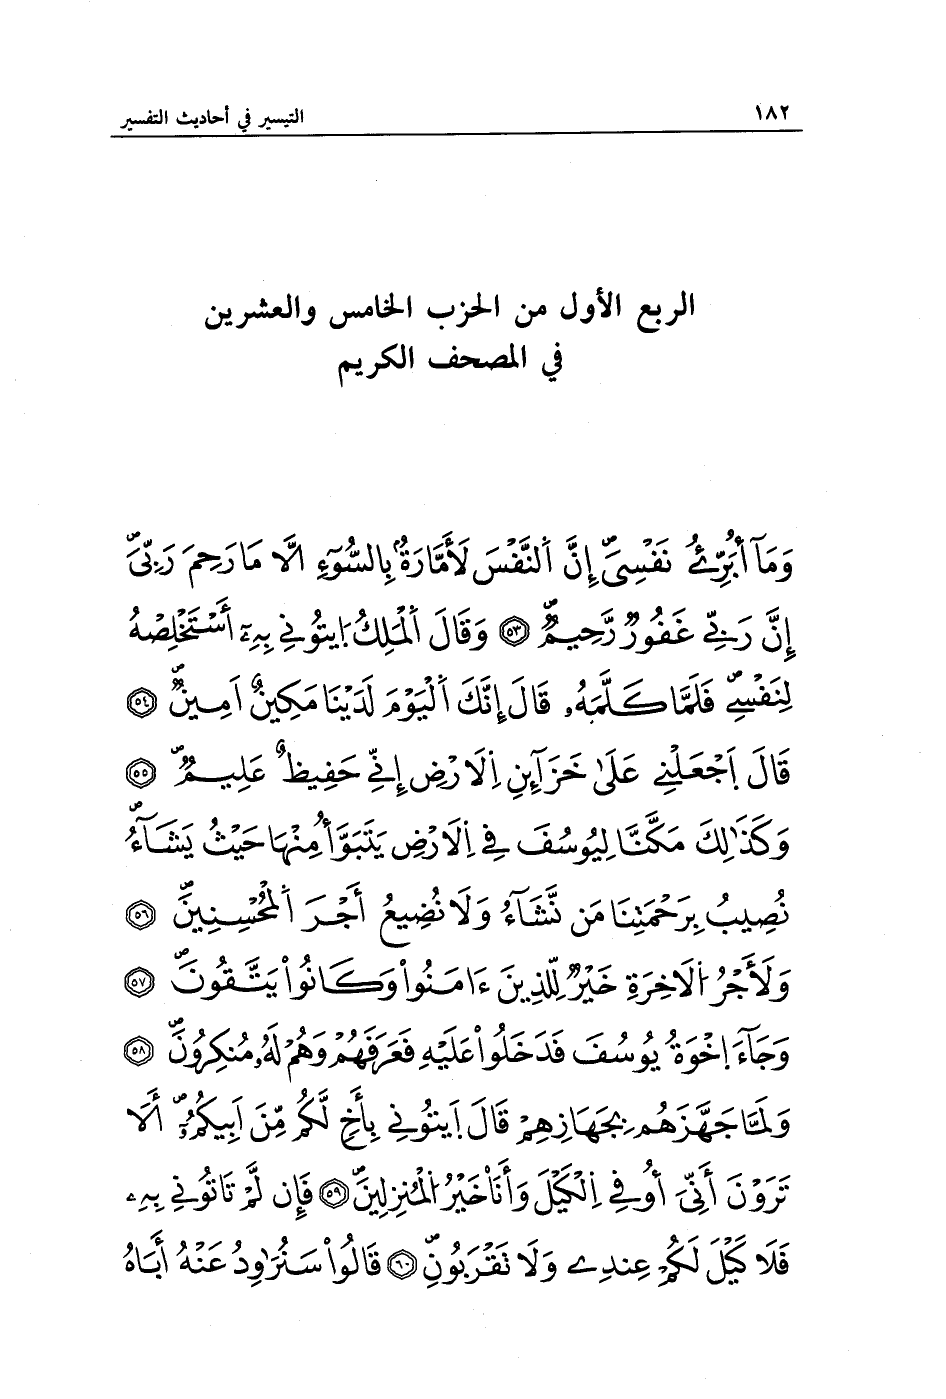 ١٨٢
التيسير في أحاديث التفسير
الربع الأول من الحزب الخامس والعشرين
في المصحف الكريم
وَمَآ أُبَرِّئُ نَفْسِيَ إِنَّ اَ۬لنَّفْسَ لَأَمَّارَةُۢ بِالسُّوٓءِ اِ۪لَّا مَا رَحِمَ رَبِّيَ
إِنَّ رَبِّي غَفُورٞ رَّحِيمٞ ٥٣ وَقَالَ اَ۬لْمَلِكُ اُ۪يتُونِي بِهِۦٓ أَسْتَخْلِصْهُ
لِنَفْسِے فَلَمَّا كَلَّمَهُۥ قَالَ إِنَّكَ اَ۬لْيَوْمَ لَدَيْنَا مَكِينٌ اَمِينٞ ٥٤
قَالَ اَ۪جْعَلْنِي عَلَىٰ خَزَآئِنِ اِ۬لَارْضِ إِنِّي حَفِيظٌ عَلِيمٞ ٥٥
وَكَذَٰلِكَ مَكَّنَّا لِيُوسُفَ فِي اِ۬لَارْضِ يَتَبَوَّأُ مِنْهَا حَيْثُ يَشَآءُ
نُصِيبُ بِرَحْمَتِنَا مَن نَّشَآءُ وَلَا نُضِيعُ أَجْرَ اَ۬لْمُحْسِنِينَ ٥٦
وَلَأَجْرُ اُ۬لَاخِرَةِ خَيْرٞ لِّلذِينَ ءَامَنُواْ وَكَانُواْ يَتَّقُونَ ٥٧
وَجَآءَ اِخْوَةُ يُوسُفَ فَدَخَلُواْ عَلَيْهِ فَعَرَفَهُمْ وَهُمْ لَهُۥ مُنكِرُونَ ٥٨
وَلَمَّا جَهَّزَهُم بِجَهَازِهِمْ قَالَ اَ۪يتُونِي بِأَخٖ لَّكُم مِّنَ اَبِيكُمُۥٓ أَلَا
تَرَوْنَ أَنِّيَ أُوفِي اِ۬لْكَيْلَ وَأَنَا خَيْرُ اُ۬لْمُنزِلِينَ ٥٩ فَإِن لَّمْ تَاتُونِي بِهِۦ
فَلَا كَيْلَ لَكُمْ عِندِے وَلَا تَقْرَبُونِ ٦٠ قَالُواْ سَنُرَٰوِدُ عَنْهُ أَبَاهُ